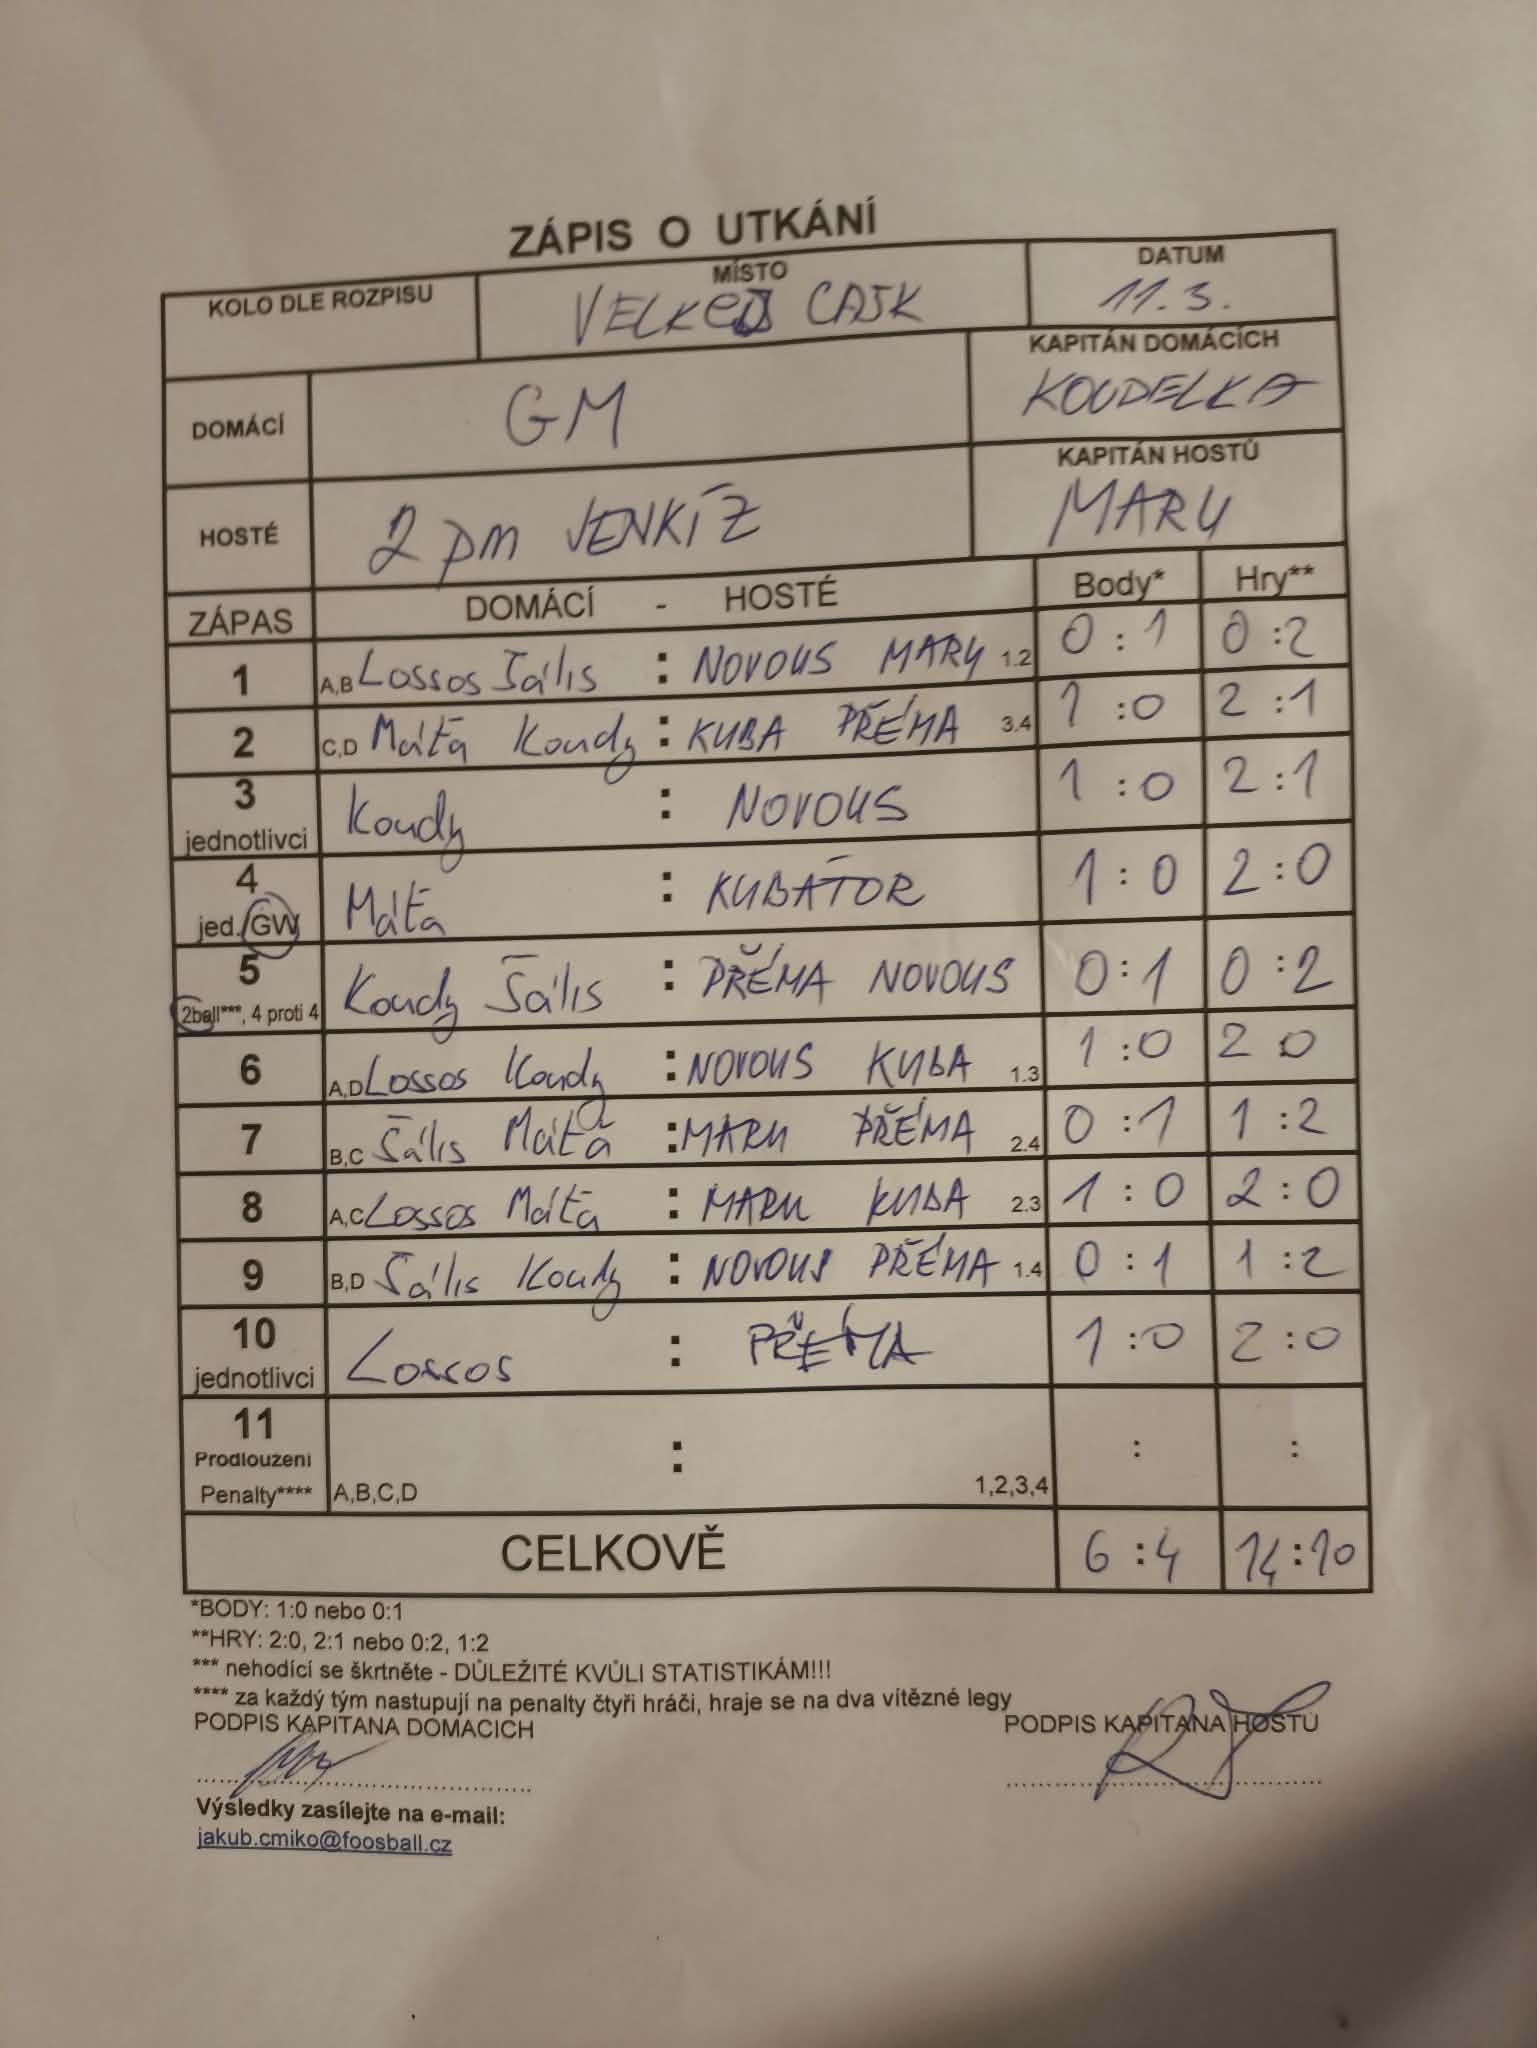 ZÁPIS O UTKÁNÍ
KOLO DLE ROZPISU
MÍSTO
VELKEJ CAJK
DATUM
11.3.
DOMÁCÍ
GM
KAPITÁN DOMÁCÍCH
KOUDELKA
HOSTÉ
2 pm JENKÍZ
KAPITÁN HOSTŮ
MARY
ZÁPAS DOMÁCÍ - HOSTÉ Body* Hry**
1 A,B Lossos Šális : NOVOUS MARY 1.2 0 : 1 0 : 2
2 C,D Máťa Koudy : KUBA PŘÉMA 3.4 1 : 0 2 : 1
3 jednotlivci Koudy : NOVOUS 1 : 0 2 : 1
4 jed./GW Máťa : KUBÁTOR 1 : 0 2 : 0
5 2ball***, 4 proti 4 Koudy Šális : PŘÉMA NOVOUS 0 : 1 0 : 2
6 A,D Lossos Koudy : NOVOUS KUBA 1.3 1 : 0 2 0
7 B,C Šális Máťa : MARY PŘÉMA 2.4 0 : 1 1 : 2
8 A,C Lossos Máťa : MARY KUBA 2.3 1 : 0 2 : 0
9 B,D Šális Koudy : NOVOUS PŘÉMA 1.4 0 : 1 1 : 2
10 jednotlivci Lossos : PŘÉMA 1 : 0 2 : 0
11 Prodloužení Penalty**** A,B,C,D : 1,2,3,4 : :
CELKOVĚ 6 : 4 14 : 10
*BODY: 1:0 nebo 0:1
**HRY: 2:0, 2:1 nebo 0:2, 1:2
*** nehodící se škrtněte - DŮLEŽITÉ KVŮLI STATISTIKÁM!!!
**** za každý tým nastupují na penalty čtyři hráči, hraje se na dva vítězné legy
PODPIS KAPITANA DOMACICH
PODPIS KAPITANA HOSTU
Výsledky zasílejte na e-mail:
jakub.cmiko@foosball.cz